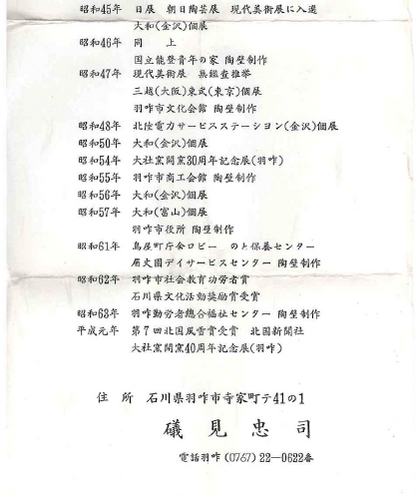 昭和45年 日展 朝日陶芸展 現代美術展に入選
大和(金沢)個展
昭和46年 同 上
国立能登青年の家 陶壁制作
昭和47年 現代美術展 無鑑査推挙
三越(大阪)東武(東京)個展
羽咋市文化会館 陶壁制作
昭和48年 北陸電力サービスステーション(金沢)個展
昭和50年 大和(金沢)個展
昭和54年 大社窯開窯30周年記念展(羽咋)
昭和55年 羽咋市商工会館 陶壁制作
昭和56年 大和(金沢)個展
昭和57年 大和(富山)個展
羽咋市役所 陶壁制作
昭和61年 鳥屋町庁舎ロビー のと保養センター
デイサービスセンター 陶壁制作
昭和62年 羽咋市社会教育功労者賞
石川県文化活動奨励賞受賞
昭和63年 羽咋勤労者総合福祉センター 陶壁制作
平成元年 第7回北国風雪賞受賞 北国新聞社
大社窯開窯40周年記念展(羽咋)
住 所 石川県羽咋市寺家町テ41の1
礒 見 忠 司
電話羽咋(0767)22-0622番